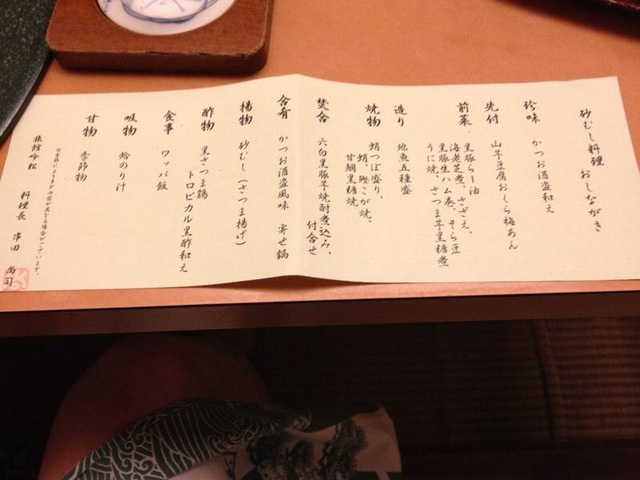 砂むし料理 おしながき
珍味 かつお酒盗和え
先付 山芋豆腐おくら梅あん
前菜 黒豚らー油
海老芝煮、さざえ、そら豆
黒豚生ハム巻、さつま芋黒糖煮
うに焼
造り 地魚五種盛
焼物 蛸つぼ盛り、
蛸、鰹こが焼、
甘鯛黒糖焼
焚合 六白黒豚芋焼酎煮込み、
付合せ
合肴 かつお酒盗風味 寄せ鍋
揚物 砂むし(さつま揚げ)
酢物 黒さつま鶏
トロピカル黒酢和え
食事 ワッパ飯
吸物 蛤のり汁
甘物 季節物
旅館吟松
料理長 串田 尚司